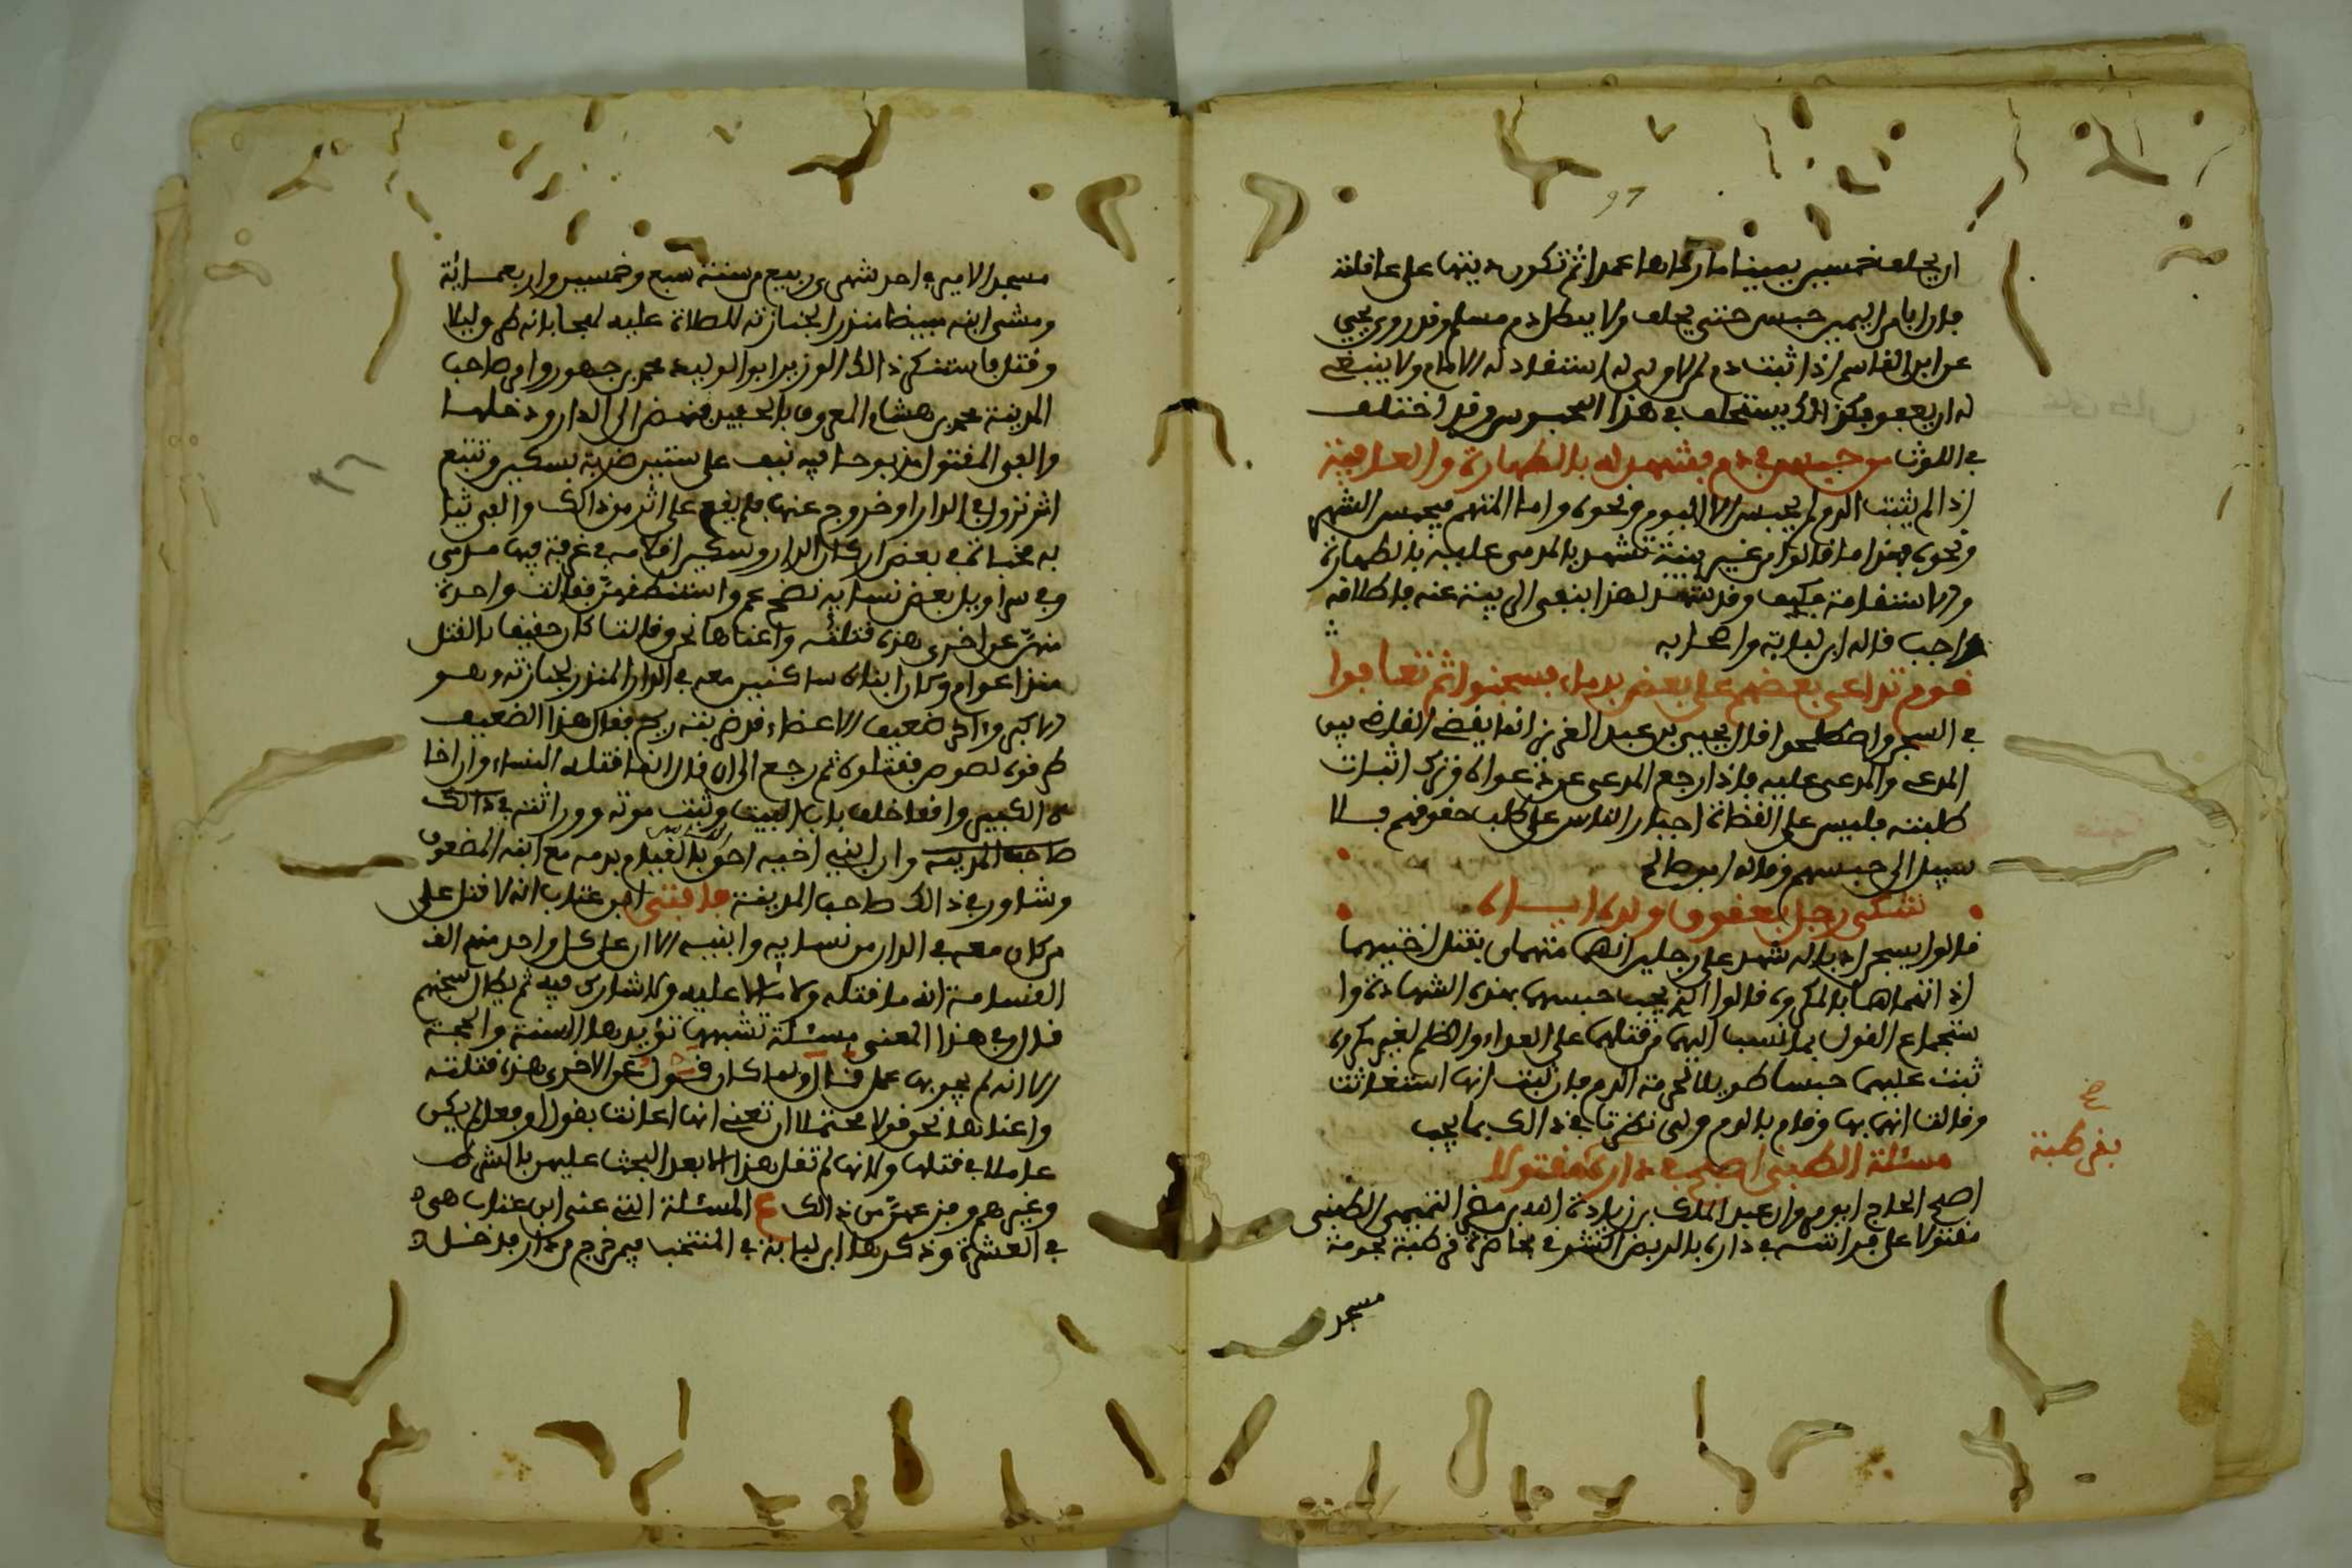 97
ان يحلف خمسين يمينا ما ارداها عمدا ثم تكون ديتها على عاقلته
فان ابا من اليمين حبس حتى يحلف ولا يبطل دم مسلم وقد روى يحيى
عن ابن القاسم اذا ثبت دم لمن لا ولي له استقاد له الامام ولا ينبغي
له ان يعفو وكذالك يستحلف في هذا المحبوس وقد اختلف
في اللوث من حبس في دم فشهد له بالطهارة والعافية
اذا لم يثبت الدم لم يحبس الا اليوم ونحوه واما المتهم فيحبس الشهر
ونحوه فهذا ما قالوا من غير بينة تشهد بالمدعى عليه بالطهارة
والاستقامة فكيف وقد شهد لهذا بنفي الريبة عنه فاطلاقه
واجب قاله ابن لبابة واصحابه
قوم تداعى بعضهم على بعض بدماء فسجنوا ثم تعافوا
في السجن واصطلحوا قال يحيى بن عبد العزيز انما يقضي القاضي بين
المدعي والمدعى عليه فاذا رجع المدعي عن دعواه وترك اثبات
طلبته فليس على القضاة اجبار الناس على طلب حقوقهم فلا
سبيل الى حبسهم وقاله ابو صالح
تشكى رجل بعقوق ولده اياه
قالوا يسجن ادبا له شهد على رجلين انهما متهمان بقتل اختيهما
اذ اتهماها بالمكروه قالوا الذي يجب حبسهما بهذه الشهادة وا
ستجماع القول بما نسب اليهما من قتلهما على العداء والظلم لغير مكروه
ثبت عليهما حبسا طويلا لحرمة الدم فان ثبت انها استغاثت
وقالت انهما بها وقام بالدم ولي نظرنا في ذالك بما يجب
مسئلة الطبني اصبح في داره مقتولا
اصبح الحاج ابو مروان عبد الملك بن زيادة الله بن مضر التميمي الطبني
مقتولا على فراشه في داره بالربض الشرقي بحاضرة قرطبة بحومة
بقرطبة
مسجد
مسجد الامير في احد شهري ربيع من سنة سبع وخمسين واربعمائة
ومشى ابنه مبيضا منذرا بجنازته للصلاة عليه فبحا بانه طرق ليلا
وقتل فاستنكر ذالك الوزير ابو الوليد محمد بن جهور وامر صاحب
المدينة محمد بن هشام المعروف بالحفيد فنهض الى الدار ودخلها
والفى المقتول مذبوحا فيه نيف على ستين ضربة بسكين وتتبع
اثر نزول في الدار او خروج عنها فلم يقع على اثر من ذالك والفى ثيا
به مخباة في بعض اركان الدار وسكين اقلامه في غرفة فيها مدمى
وفي سراويل بعض نسايه نضح دم واستنطقهن فقالت واحدة
منهن عن اخرى هذه قتلته واعناها نحن وقالت كان حقيقا بالقتل
منذ اعوام وكان ابناه ساكنين معه في الدار المنذر بجنازته وهو
الاكبر واخر ضعيف الاعضاء قد ضربته ريح فقال هذا الضعيف
طرقوه لصوص فقتلوه ثم رجع الى ان قال انما قتله النساء وان اخا
ه الكبير واقفا خلف باب البيت وثبت موته ووراثته في ذالك
صاحب المدينة وان ابني اخيه احق بالقيام بدمه مع ابنه المضعوف
وشاور في ذالك صاحب المدينة فافتى ابن عتاب انه لا قتل على
من كان معه في الدار من نسايه وابنيه الا ان على كل واحد منهم الف
القسامة انه ما قتله ولا مالا عليه ولا شارك فيه ثم يطال سجنهم
قال وفي هذا المعنى مسئلة تشبهها تؤيدها السنة والحجة
الا انه لم يجر بها عمل قال وانما كان قول عن الاخرى هذه قتلته
واعناها نحن قولا محتملا ان تعني انها اعانت بقول او فعل لم يكن
عاملا في قتلها ولانها لم تقل هذا الا بعد البحث عليهن بالشرط
وغيرهم وجزعهن من ذالك ع المسئلة التي عنى ابن عتاب هي
في العشرة وذكرها ابن لبابة في المنتخب فيمن خرج من دار فدخل